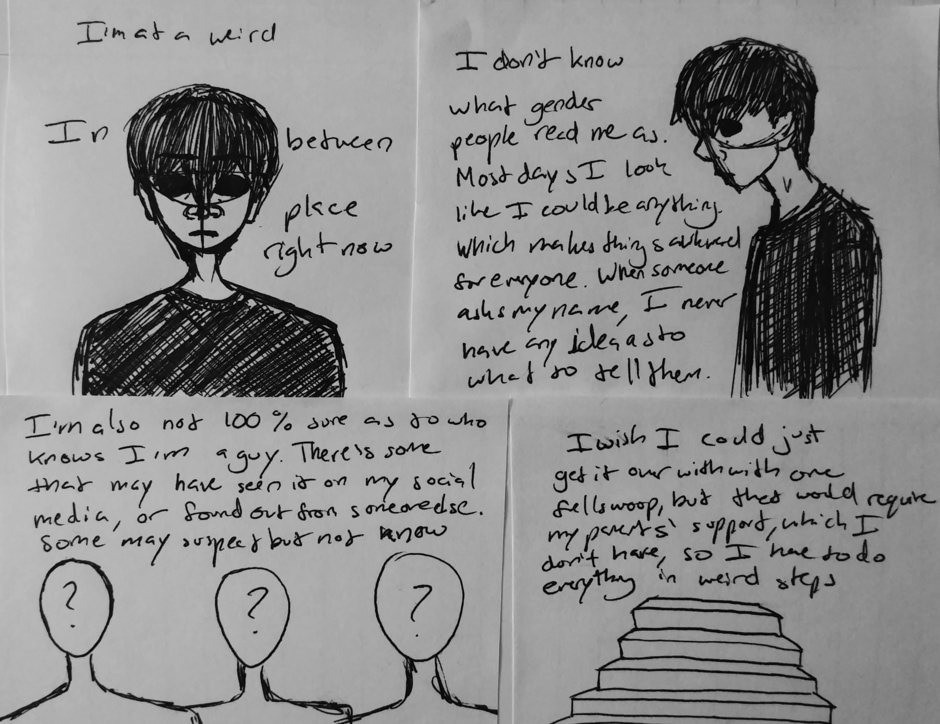 I'm at a weird
In between
place
right now
I don't know
what gender
people read me as.
Most days I look
like I could be anything.
which makes things awkward
for everyone. When someone
asks my name, I never
have any idea as to
what to tell them.
I'm also not 100% sure as to who
knows I'm a guy. There's some
that may have seen it on my social
media, or found out from someone else.
Some may suspect but not know
?
?
?
I wish I could just
get it over with with one
fell swoop, but that would require
my parents' support, which I
don't have, so I have to do
everything in weird steps